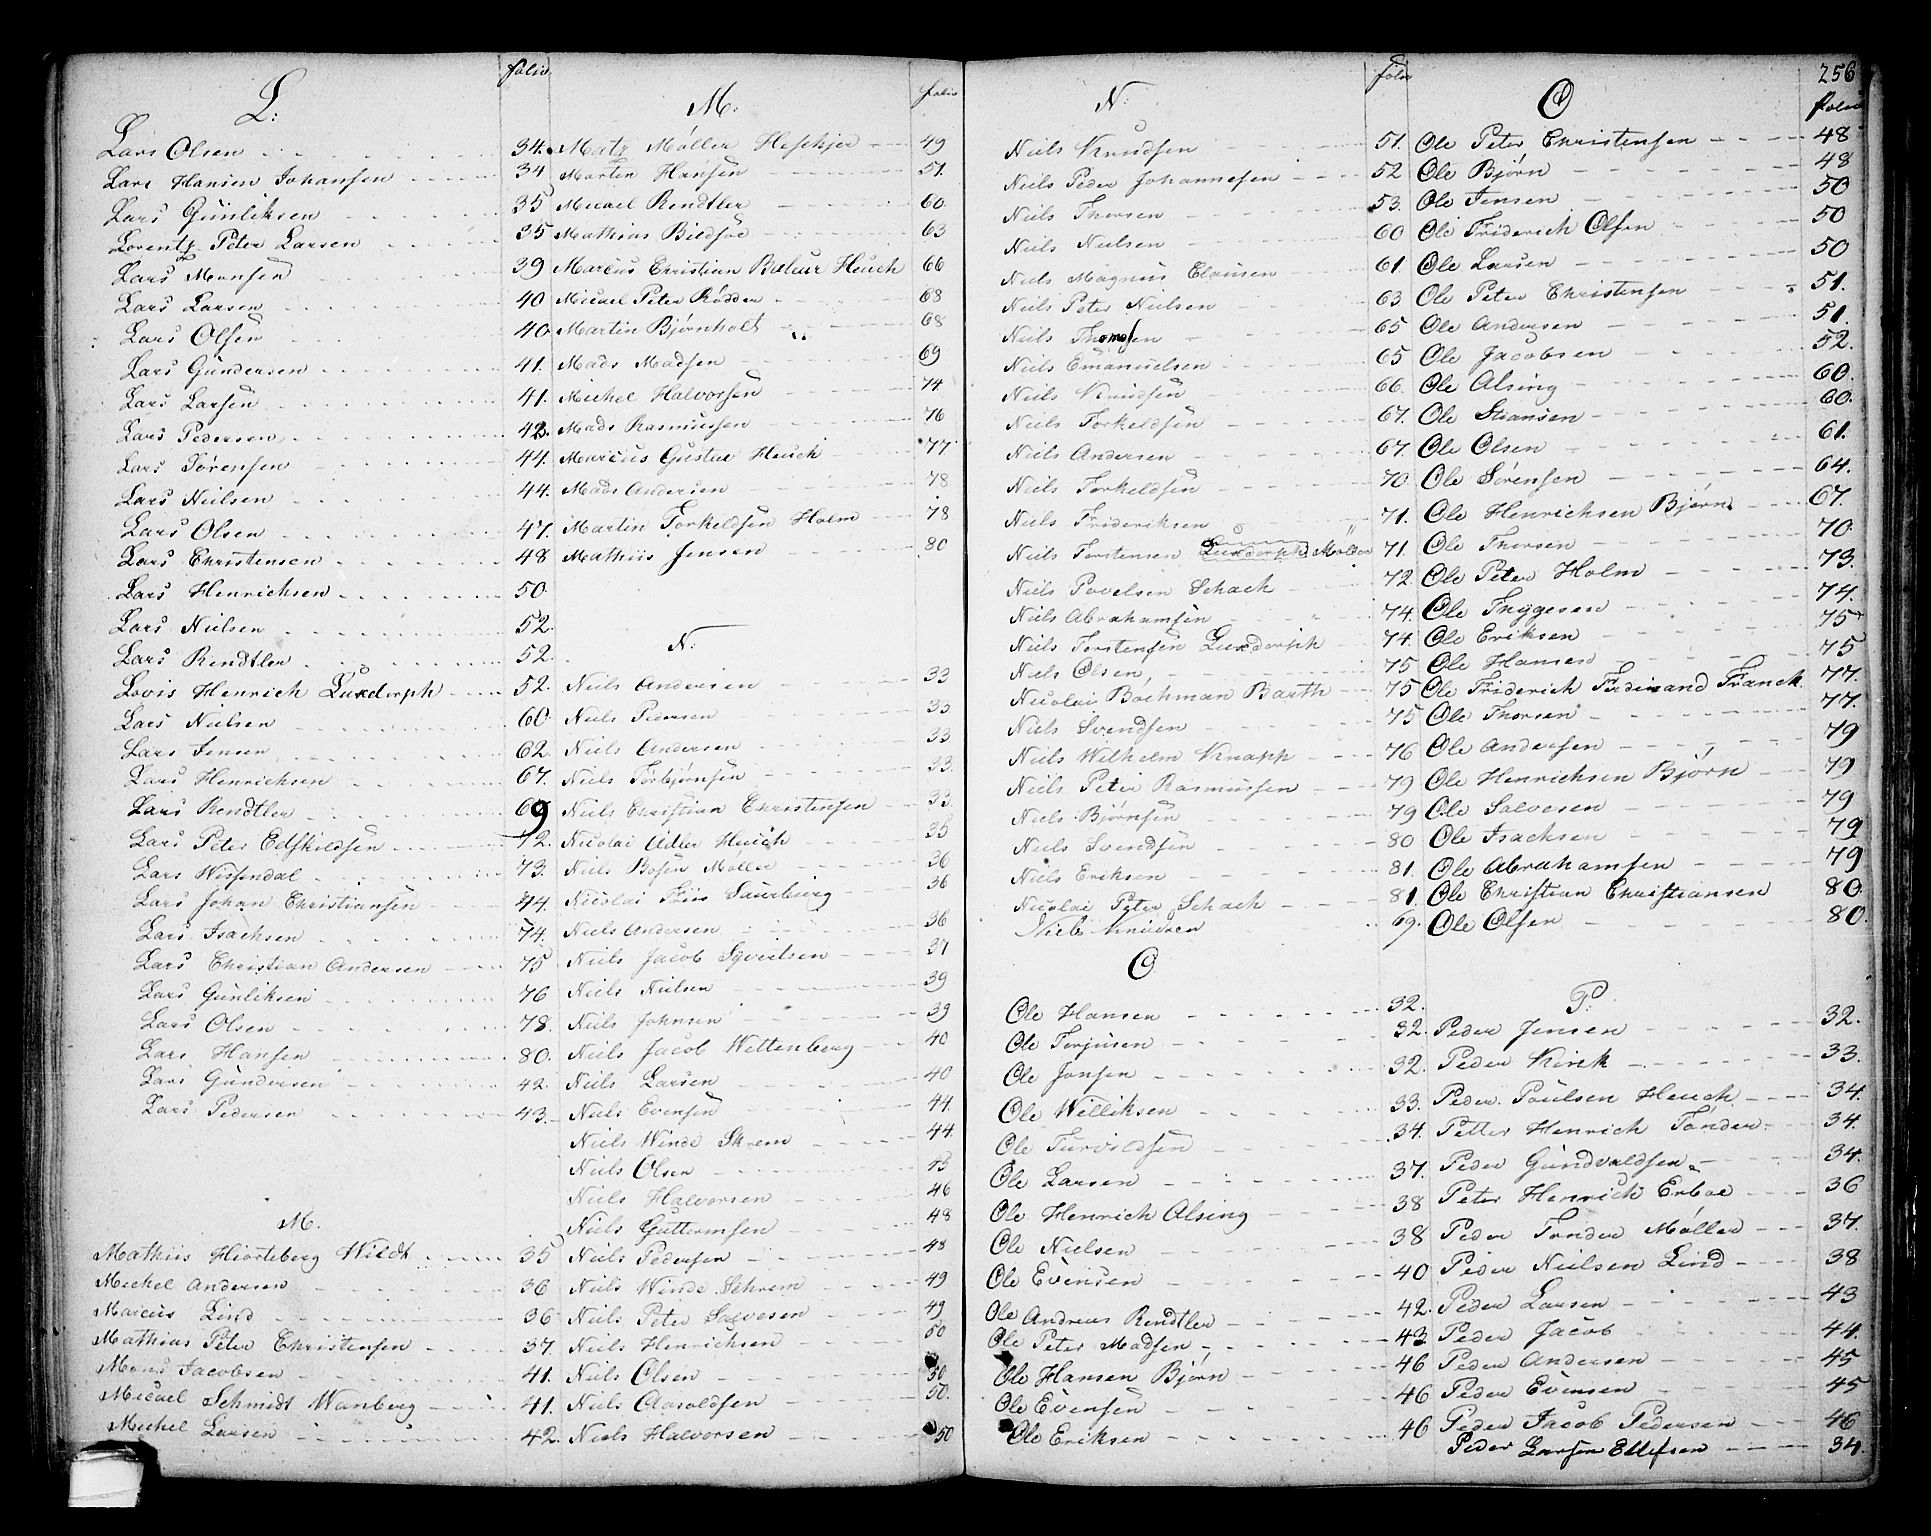 L:
folio
Lars Olsen 34.
Lars Hansen Johansen 34
Lars Gunliksen 35
Lorentz Peter Larsen 35
Lars Monsen 39
Lars Larsen 40
Lars Olsen 40
Lars Gundersen 41.
Lars Larsen 41.
Lars Pedersen 42.
Lars Sørensen 44.
Lars Nielsen 44.
Lars Olsen 47.
Lars Christensen 48
Lars Henrichsen 50.
Lars Nielsen 52.
Lars Rendtler 52.
Lovis Henrich Lundorph 52.
Lars Nielsen 60
Lars Jensen 62.
Lars Henrichsen 67.
Lars Rendtler 69
Lars Peter Edskildsen 72.
Lars Wissendal 73.
Lars Johan Christiansen 74.
Lars Isachsen 74.
Lars Christian Andersen 75
Lars Gunliksen 76
Lars Olsen 78.
Lars Hansen 80.
Lars Gundersen 42.
Lars Pedersen 43.
M.
Mathiis Hiorteberg Wildt 35
Michel Andersen 36
Marcus Lind 36
Mathias Peter Christensen 37.
Mons Jacobsen 41.
Micael Schmidt Wanberg 41.
Michel Larsen 42.
M:
folio
Matz Møller Heskjer 49
Morten Hansen 51.
Micael Rendtler 60
Mathias Biedsøe 63
Marcus Christian Heuch 66
Micael Peter Rødder 68
Martin Bjørnholt 68
Mads Madsen 69
Michel Halvorsen 74
Mads Rasmussen 76
Marcus Gustav Heuch 77
Mads Andersen 78
Martin Torkeldsen Holm 78
Mathiis Jensen 80
N:
Niels Andersen 33
Niels Pedersen 33
Niels Andersen 33
Niels Torbjørnsen 33.
Niels Christian Christensen 33
Nicolai Adler Heuch 35
Niels Bosen Møller 36
Nicolai Friis Saurbierg 36
Niels Andersen 36
Niels Jacob Syvertsen 37
Niels Nielsen 39
Niels Johnsen 39
Niels Jacob Wettenberg 40
Niels Larsen 40
Niels Evensen 44.
Niels Winde Skrem 44.
Niels Olsen 45
Niels Halvorsen 46
Niels Guttormsen 48
Niels Pedersen 48
Niels Winde Schrem 49
Niels Peter Salvesen 49
Niels Henrichsen 50
Niels Olsen 50
Niels Aaroldsen 50.
Niels Halvorsen 50
N:
folio
Niels Knudsen 51.
Niels Peder Johannesen 52
Niels Thorsen 53.
Niels Nielsen 60
Niels Magnus Clausen 61.
Niels Peter Nielsen 63
Niels Thomsen 65
Niels Emanuelsen 65
Niels Knudsen 66.
Niels Torkeldsen 67.
Niels Andersen 67.
Niels Torkeldsen 70.
Niels Frideriksen 71.
Niels Torstensen Lundorph Møller 71.
Niels Povelsen Schack 72.
Niels Abrahamsen 74.
Niels Torstensen Lundorph 74.
Niels Olsen 75
Nicolai Bochman Barth 75
Niels Svendsen 75
Niels Wilhelm Knapp 76
Niels Peter Rasmussen 79
Niels Bjørnsen 79
Niels Svendsen 80
Niels Eriksen 81.
Nicolai Peter Schack 81.
Niels Knudsen 69.
O
Ole Hansen 32.
Ole Torjusen 32.
Ole Jonsen 32.
Ole Williksen 33.
Ole Turvildsen 34.
Ole Larsen 37.
Ole Henrich Alsing 38
Ole Nielsen 38
Ole Evensen 40
Ole Andreas Rendtler 42.
Ole Peter Madsen 43
Ole Hansen Bjørn 46
Ole Evensen 46
Ole Eriksen 46
256
O
folio
Ole Peter Christensen 48
Ole Bjørn 48
Ole Jensen 50
Ole Friderich Olsen 50
Ole Larsen 50
Ole Peter Christensen 51.
Ole Andersen 51.
Ole Jacobsen 52.
Ole Alsing 60.
Ole Stiansen 60.
Ole Olsen 61.
Ole Sørensen 64.
Ole Henrichsen Bjørn 67.
Ole Thorsen 70.
Ole Peter Holm 73.
Ole Thygesen 74.
Ole Eriksen 75
Ole Hansen 75
Ole Friderich Ferdinand Franck 77.
Ole Thorsen 77.
Ole Andersen 79
Ole Henrichsen Bjørn 79
Ole Salvesen 79
Ole Isachsen 79
Ole Abrahamsen 79
Ole Christian Christiansen 80.
Ole Olsen 80.
P:
Peder Jensen 32.
Peder Kirk 33.
Peder Poulsen Heuch 34.
Petter Henrich Tønder 34.
Peder Gundvaldsen 34.
Peter Henrich Erboe 36
Peder Tønder Møller 37.
Peder Nielsen Lind 38
Peder Larsen 43
Peder Jacob 44.
Peder Andersen 45
Peder Evensen 45
Peder Jacob Pedersen 46
Peder Larsen Ellefsen 34.